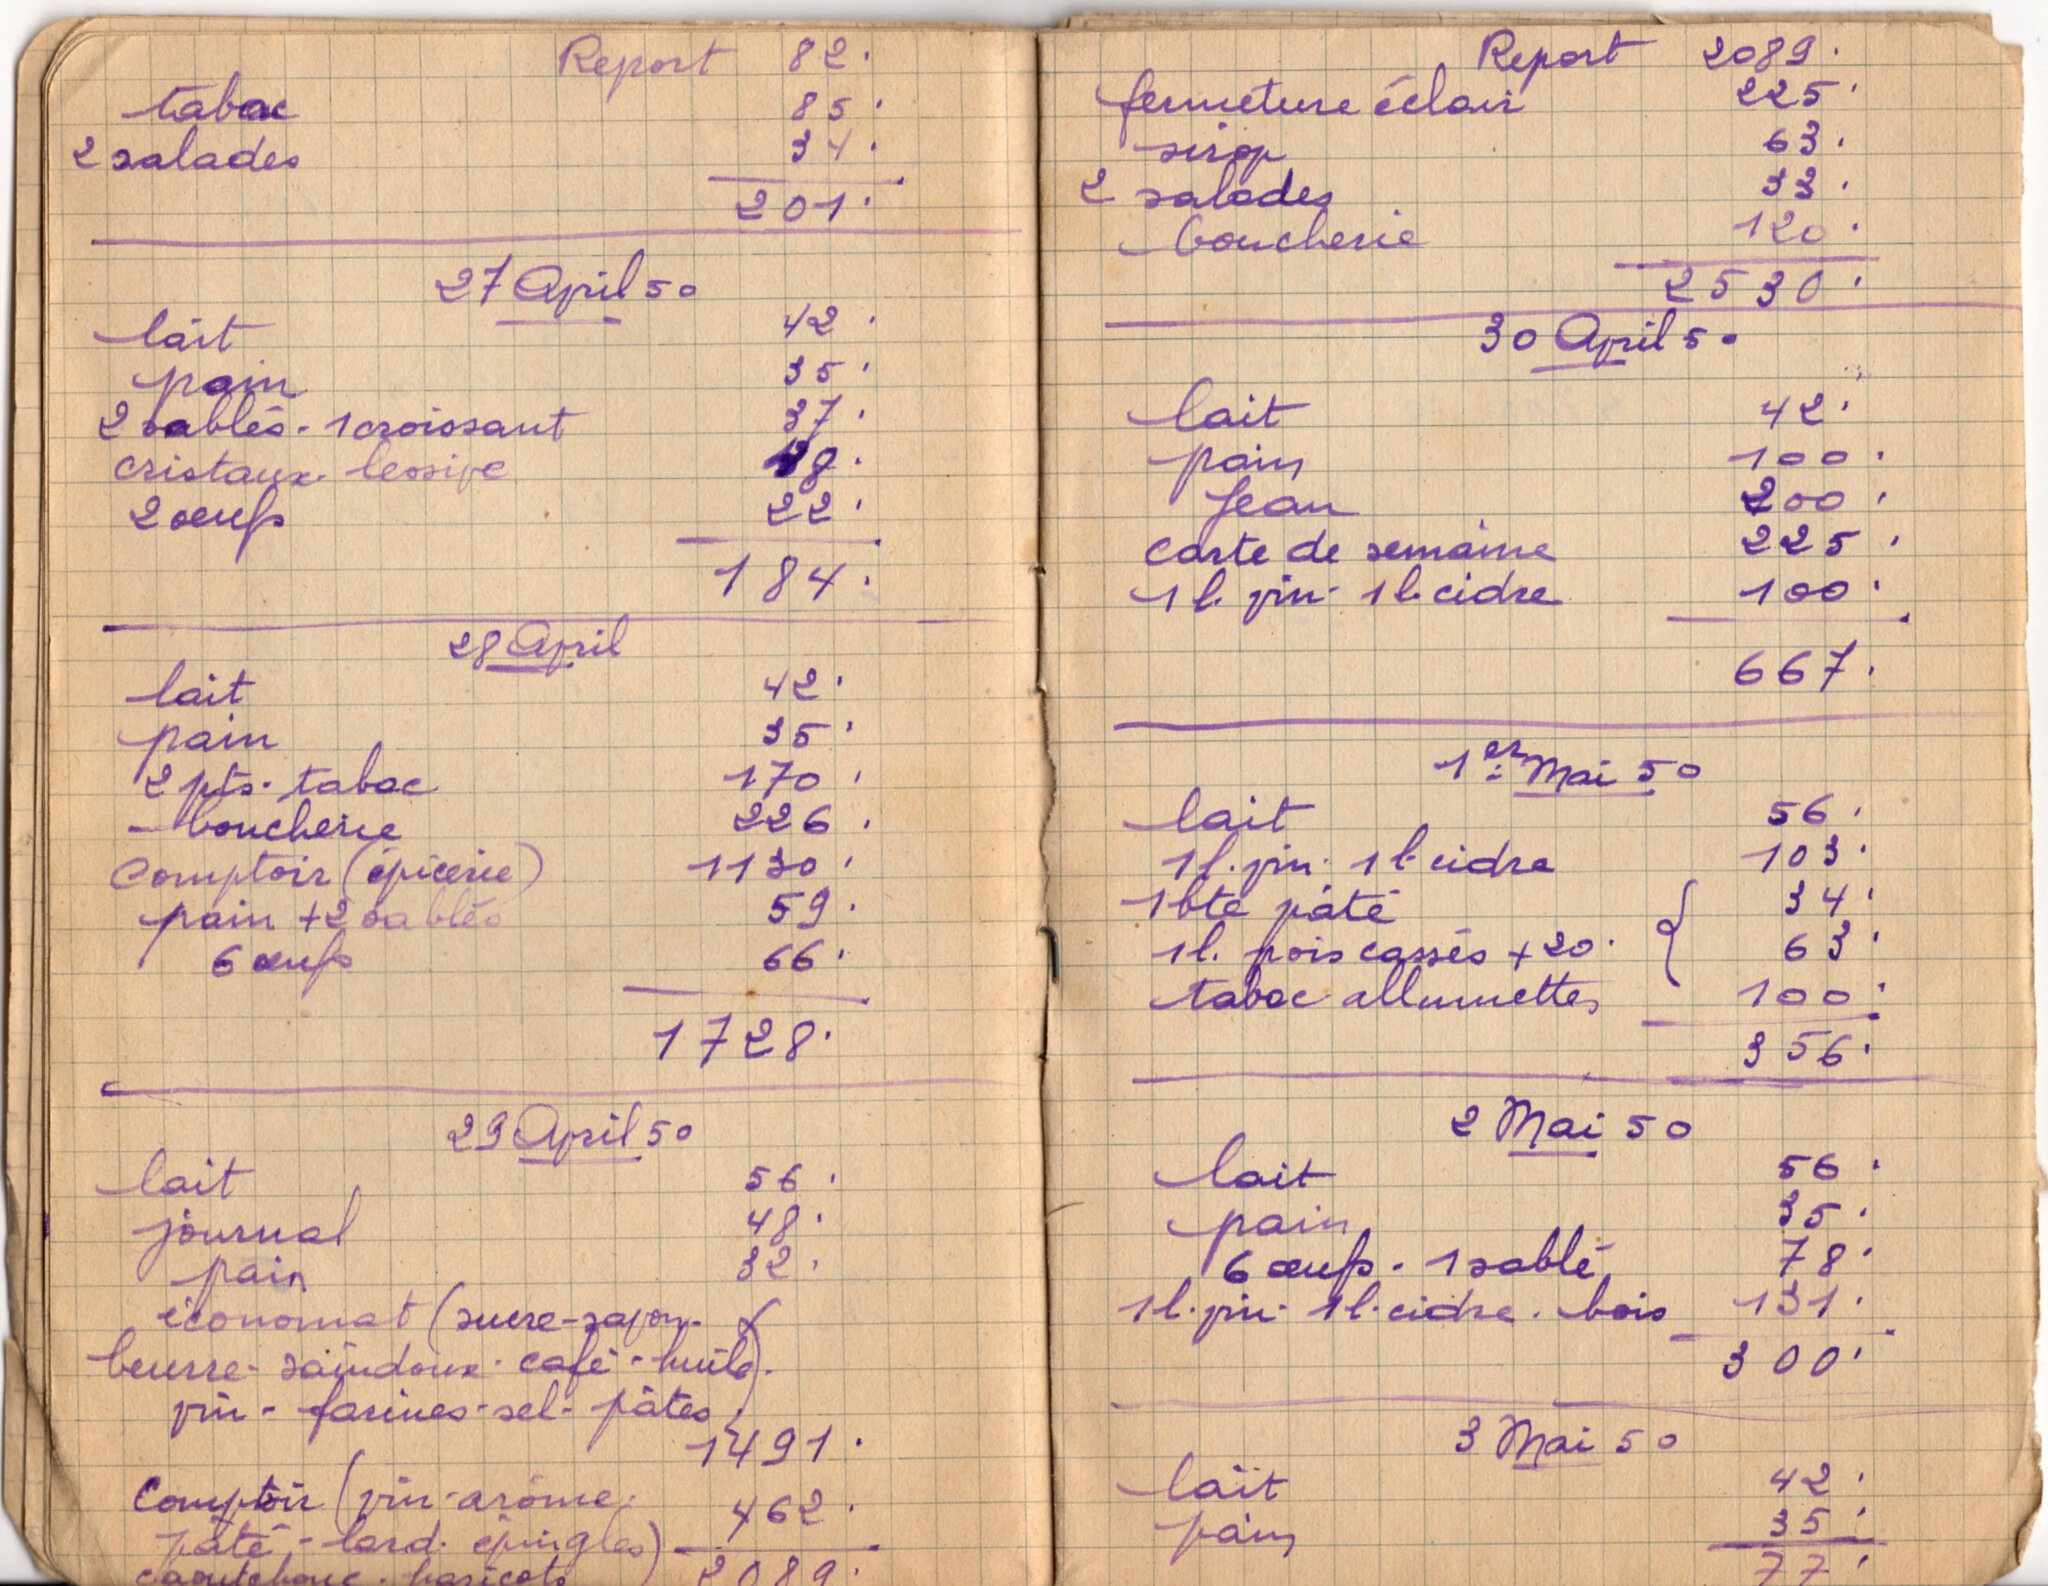 Report 82.
tabac 85.
2 salades 34.
201.
27 April 50
lait 42.
pain 35.
2 sablés - 1 croissant 37.
cristaux - lessive 48.
2 œufs 22.
184.
28 April
lait 42.
pain 35.
2 pts. tabac 170.
boucherie 226.
Comptoir (épicerie) 1130.
pain + 2 sablés 59.
6 œufs 66.
1728.
29 April 50
lait 56.
journal 48.
pain 32.
économat (sucre - savon -
beurre - saindoux - café - huile).
vin - farines - sel - pâtes,
1491.
Comptoir (vin - arôme, 462.
pâté, - lard. épingles)
caoutchouc. haricots 2089.
Report 2089.
fermeture éclair 225.
sirop 63.
2 salades 33.
boucherie 120.
2530.
30 April 50
lait 42.
pain 100.
Jean 200.
carte de semaine 225.
1 l. vin - 1 l. cidre 100.
667.
1er Mai 50
lait 56.
1 l. vin - 1 l. cidre 103.
1 bte pâté 34.
1 l. pois cassés + 20. 63.
tabac allumettes 100.
356.
2 Mai 50
lait 56.
pain 35.
6 œufs - 1 sablé 78.
1 l. vin - 1 l. cidre. bois 131.
300.
3 Mai 50
lait 42.
pain 35.
77.